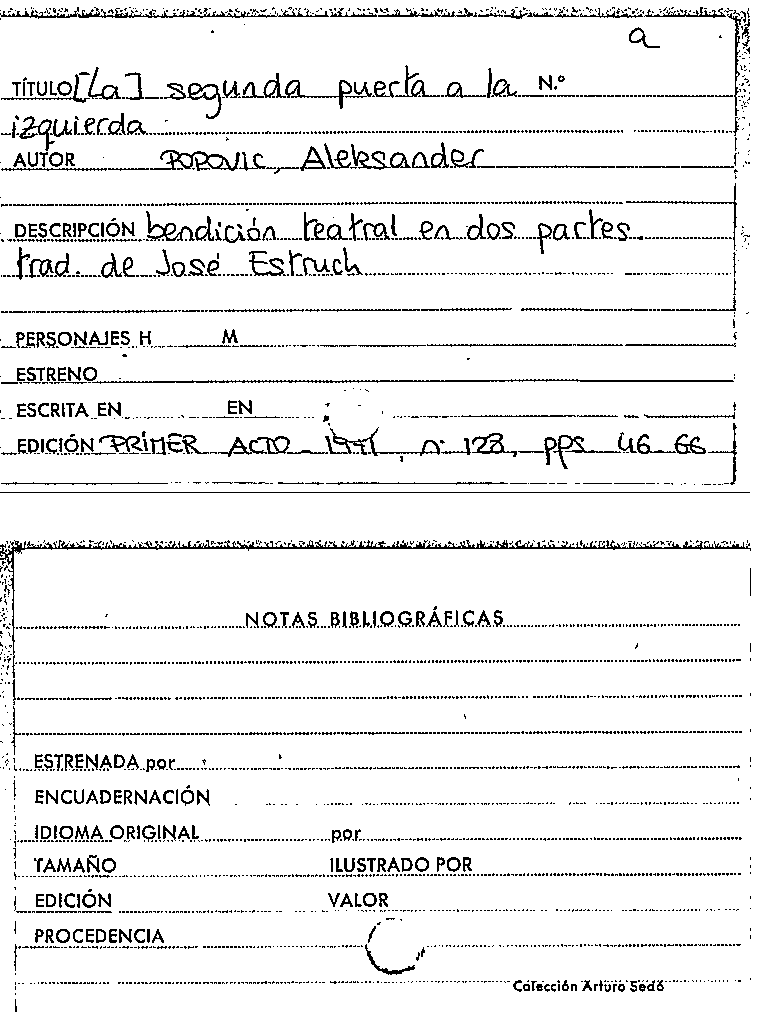 a
TÍTULO [La] segunda puerta a la N.º
izquierda
AUTOR POPOVIC, Aleksander
DESCRIPCIÓN bendición teatral en dos partes.
trad. de José Estruch
PERSONAJES H M
ESTRENO
ESCRITA EN EN
EDICIÓN PRIMER ACTO - 1971, nº 128, pps 46-66
NOTAS BIBLIOGRÁFICAS
ESTRENADA por
ENCUADERNACIÓN
IDIOMA ORIGINAL por
TAMAÑO ILUSTRADO POR
EDICIÓN VALOR
PROCEDENCIA
Colección Arturo Sedó